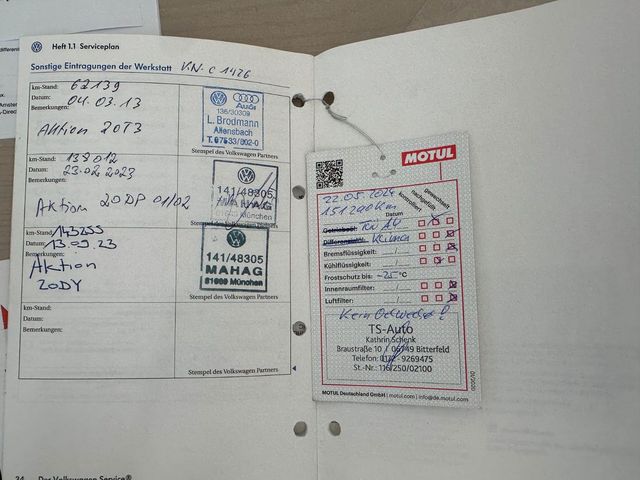 Heft 1.1 Serviceplan
Sonstige Eintragungen der Werkstatt V.N. C 1426
km-Stand: 62139
Datum: 04.03.13
Bemerkungen:
Aktion 20T3
Audi
136/30309
L. Brodmann
Allensbach
T. 07533/802-0
Stempel des Volkswagen Partners
km-Stand: 139012
Datum: 23.02.2023
Bemerkungen:
Aktion 20DP 01/02
141/48305
MAHAG
München
Stempel des Volkswagen Partners
km-Stand: 143255
Datum: 13.09.23
Bemerkungen:
Aktion
20DY
141/48305
MAHAG
81669 München
Stempel des Volkswagen Partners
km-Stand:
Datum:
Bemerkungen:
Stempel des Volkswagen Partners
Der Volkswagen Service®
MOTUL
22.05.2024
151200 km
kontrolliert
nachgefüllt
gewechselt
Datum
Getriebeöl: TÜV AU
Differenzialöl: Klima
Bremsflüssigkeit:
Kühlflüssigkeit:
Frostschutz bis: -25 °C
Innenraumfilter:
Luftfilter:
Kein Oelwechsel!
TS-Auto
Kathrin Schenk
Braustraße 10 / 06749 Bitterfeld
Telefon: 0172-9269475
St.-Nr.: 116/250/02100
MOTUL Deutschland GmbH | motul.com | info@de.motul.com